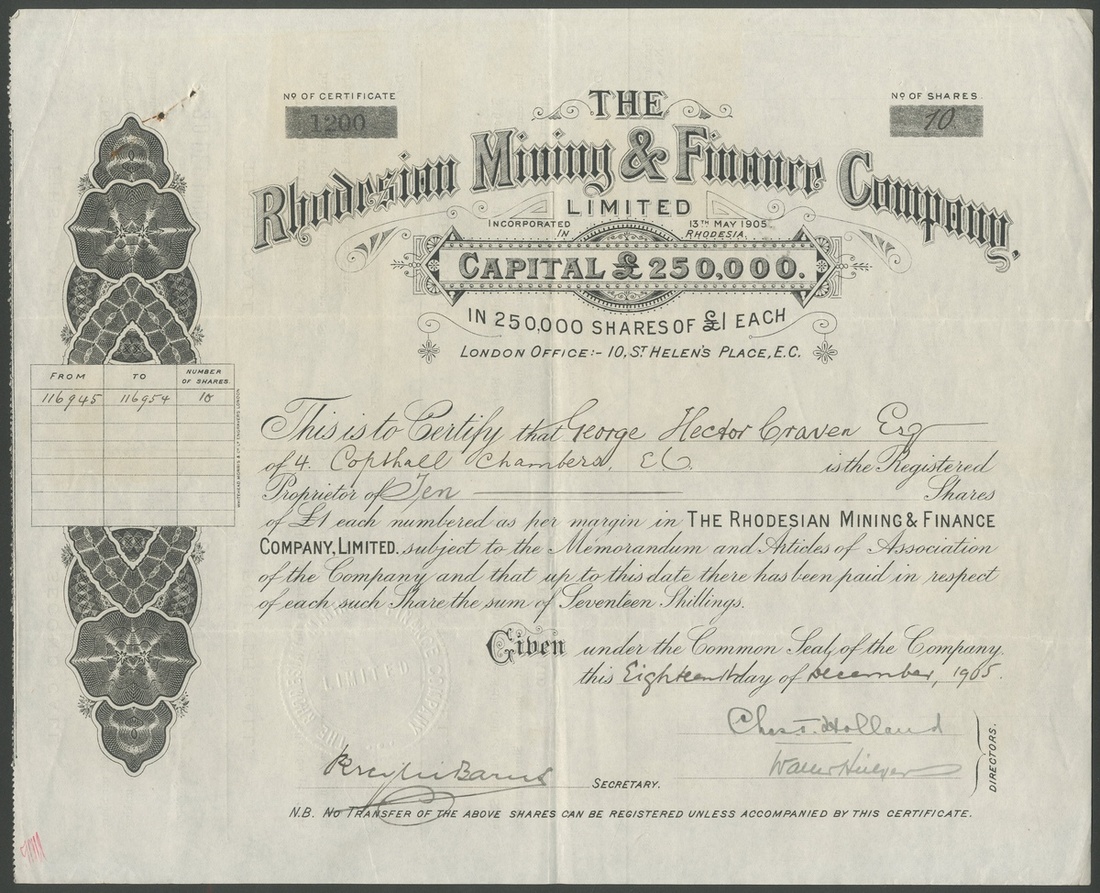 No OF CERTIFICATE
1200
No OF SHARES.
10
THE
Rhodesian Mining & Finance Company.
LIMITED
INCORPORATED IN RHODESIA 13TH MAY 1905
CAPITAL £250,000.
IN 250,000 SHARES OF £1 EACH
LONDON OFFICE:- 10, ST HELEN'S PLACE, E.C.
FROM TO NUMBER OF SHARES
116945 116954 10
WHITEHEAD MORRIS & CO LD ENGRAVERS LONDON
This is to Certify that George Hector Craven Esq
of 4. Copthall Chambers, E.C. is the Registered
Proprietor of Ten Shares
of £1 each numbered as per margin in THE RHODESIAN MINING & FINANCE
COMPANY, LIMITED. subject to the Memorandum and Articles of Association
of the Company and that up to this date there has been paid in respect
of each such Share the sum of Seventeen Shillings.
Given under the Common Seal of the Company
this Eighteenth day of December, 1905.
LIMITED
Chas. T. Holland
DIRECTORS.
SECRETARY.
N.B. NO TRANSFER OF THE ABOVE SHARES CAN BE REGISTERED UNLESS ACCOMPANIED BY THIS CERTIFICATE.